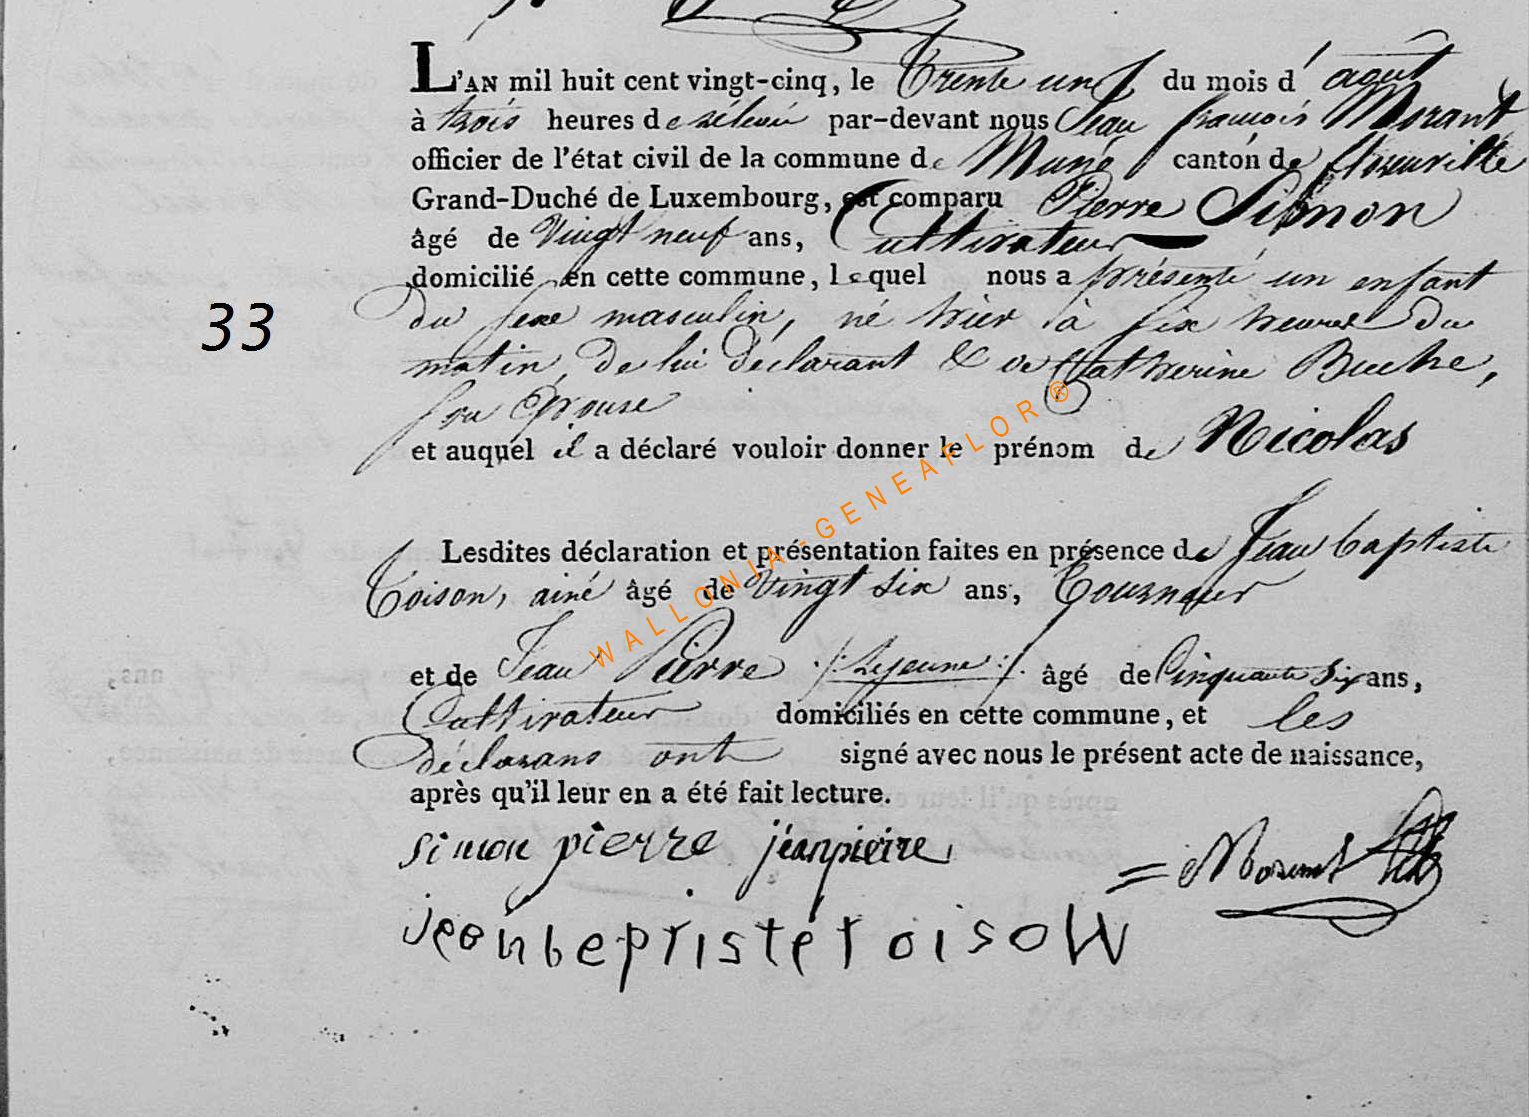 L'AN mil huit cent vingt-cinq, le Trente un du mois d'août
à trois heures de relevée par-devant nous Jean françois Morant
officier de l'état civil de la commune de Muno canton de florenville
Grand-Duché de Luxembourg, est comparu Pierre Simon
âgé de Vingt neuf ans, Cultivateur
domicilié en cette commune, lequel nous a présenté un enfant
du sexe masculin, né hier à six heures du
matin, de lui déclarant & de Catherine Buche,
son Epouse
33
et auquel il a déclaré vouloir donner le prénom de Nicolas
WALLONIA-GENEAFLOR®
Lesdites déclaration et présentation faites en présence de Jean baptiste
Toison, ainé âgé de Vingt six ans, Tourneur
et de Jean Pierre Lejeune âgé de Cinquante six ans,
Cultivateur domiciliés en cette commune, et les
déclarans ont signé avec nous le présent acte de naissance,
après qu'il leur en a été fait lecture.
simon pierre jéanpierre
= Morant
jeanbepristetoisoN